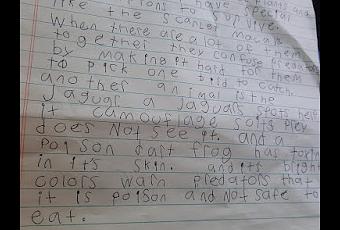 like options to have special
to survive.
like the scarlet macaw
When there are a lot of them
together they confuse predators
by making it hard for them
to pick one bird to catch.
another animal is the
Jaguar. a Jaguars spots help
it camouflage so its prey
does Not see it. and a
poison dart frog has toxin
in it's skin. and its bright
colors warn predators that
it is poison and Not safe to
eat.